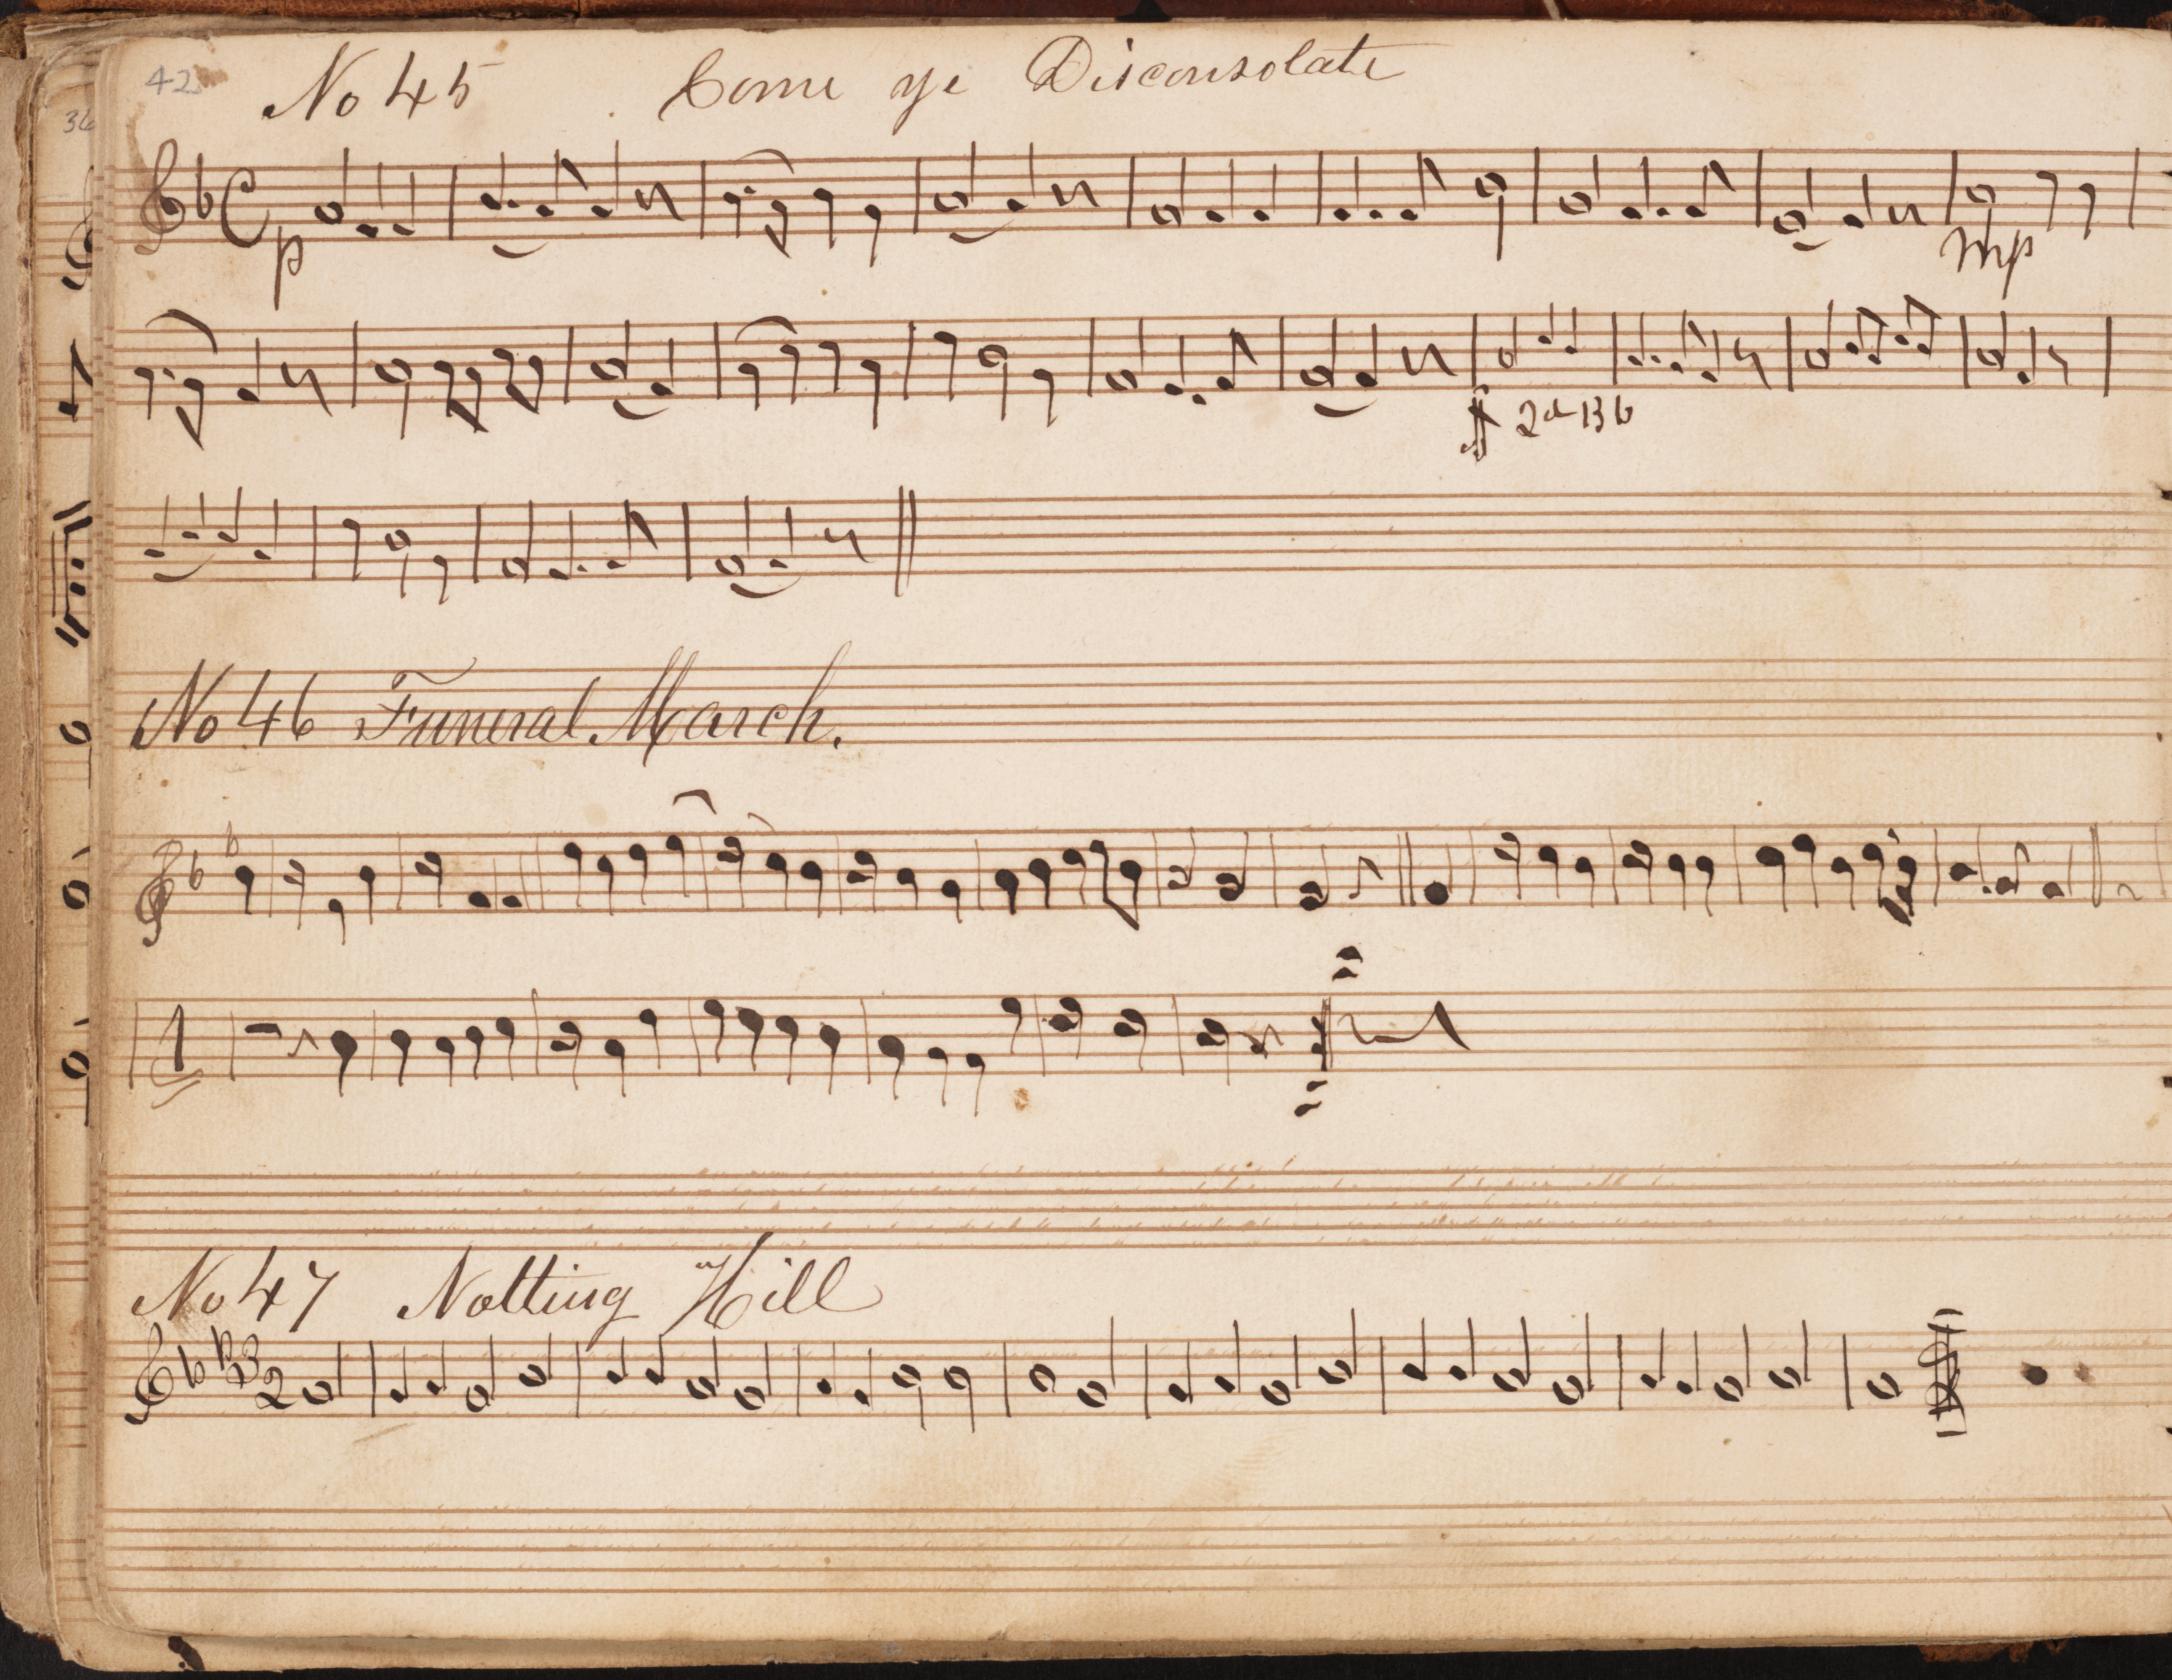 42
36
No 45 Come ye Disconsolate
p
mp
ff 2d Bb
No 46 Funeral March.
No 47 Notting Hill